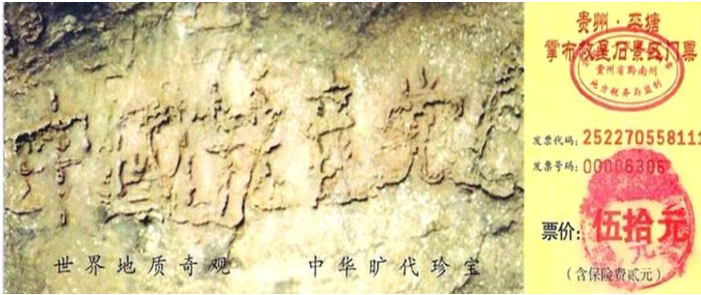 中国共产党
世界地质奇观 中华旷代珍宝
贵州·平塘
掌布救星石景区门票
贵州省黔南州
地方税务局监制
发票代码: 252270558111
发票号码: 00006306
票价: 伍拾元
(含保险费贰元)